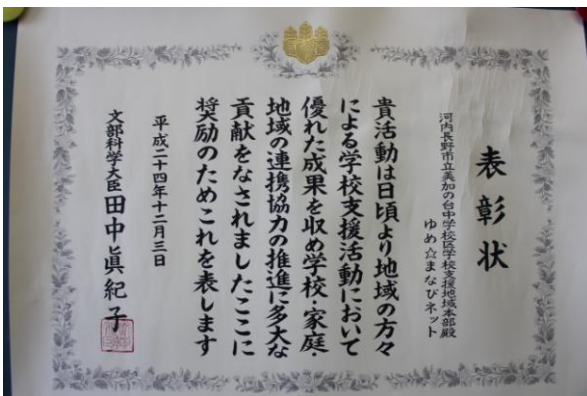 表彰状
河内長野市立美加の台中学校区学校支援地域本部殿
ゆめ☆まなびネット
貴活動は日頃より地域の方々
による学校支援活動において
優れた成果を収め学校・家庭・
地域の連携協力の推進に多大な
貢献をなされましたここに
奨励のためこれを表します
平成二十四年十二月三日
文部科学大臣 田中眞紀子